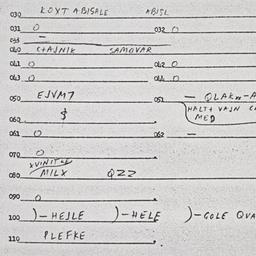 030 KOYT ABISALE ABISL
031 O 032 O
033 —
040 CHAJNIK SAMOVAR
041 O 042 O
043 O 044 O
050 EJVM7 051 — QLAK
HALT+ VAJN
MED
060 $
061 O 062 —
070 O
XVINITSE
080 MILX QZZ
090 O
100 )-HEJLE )-HELE )-GOLE QVA
110 PLEFKE